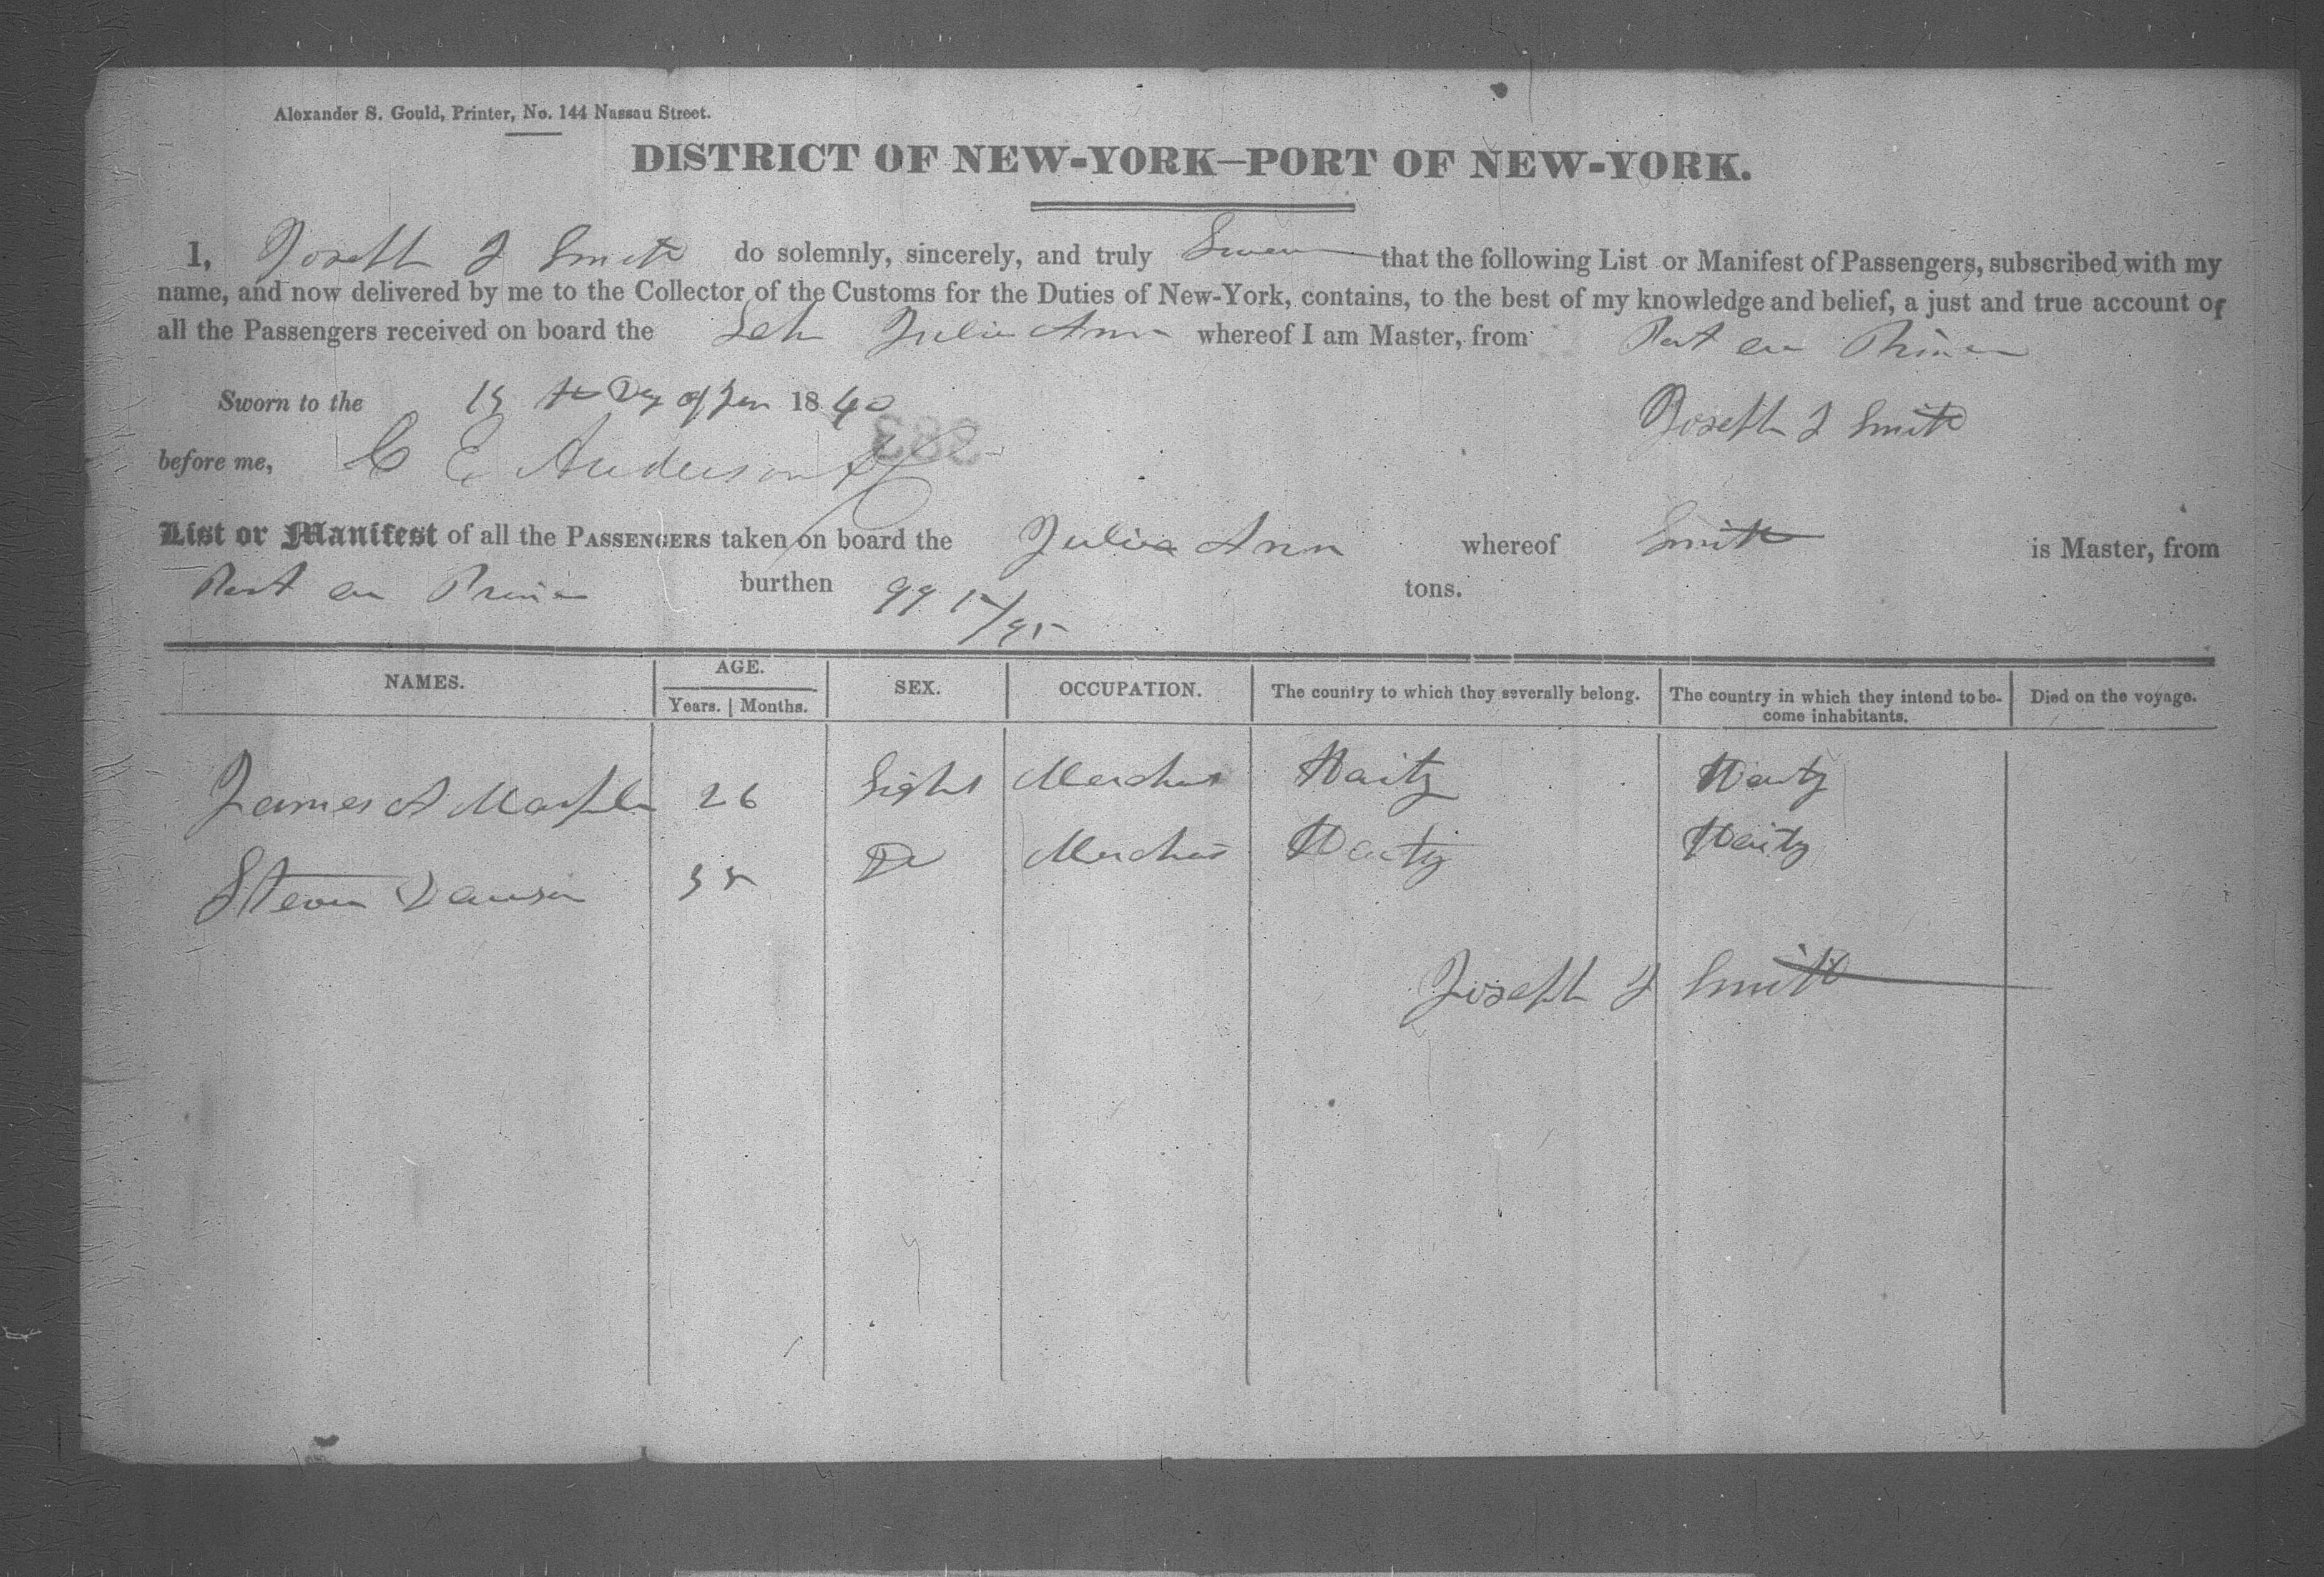 Alexander S. Gould, Printer, No. 144 Nassau Street.
DISTRICT OF NEW-YORK—PORT OF NEW-YORK.
I, Joseph J Smith do solemnly, sincerely, and truly Swear that the following List or Manifest of Passengers, subscribed with my
name, and now delivered by me to the Collector of the Customs for the Duties of New-York, contains, to the best of my knowledge and belief, a just and true account of
all the Passengers received on board the Sch Julia Ann whereof I am Master, from Port au Prince
Sworn to the 15 th Day of Jan 1840
Joseph J Smith
before me, C E Anderson
List or Manifest of all the PASSENGERS taken on board the Julia Ann whereof Smith is Master, from
Port au Prince burthen 99 tons.
NAMES. AGE. SEX. OCCUPATION. The country to which they severally belong. The country in which they intend to become inhabitants. Died on the voyage.
Years. Months.
James A 26 Merchant Haity Haity
Steven Merchant Haity Haity
Joseph J Smith